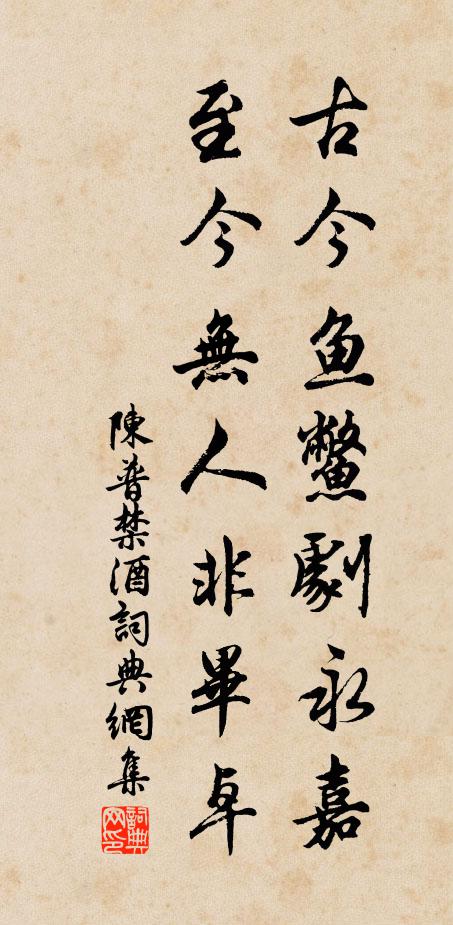 古今鱼鳖劇永嘉
至今無人非畢卓
陳普禁酒詞典網集
詞典网印